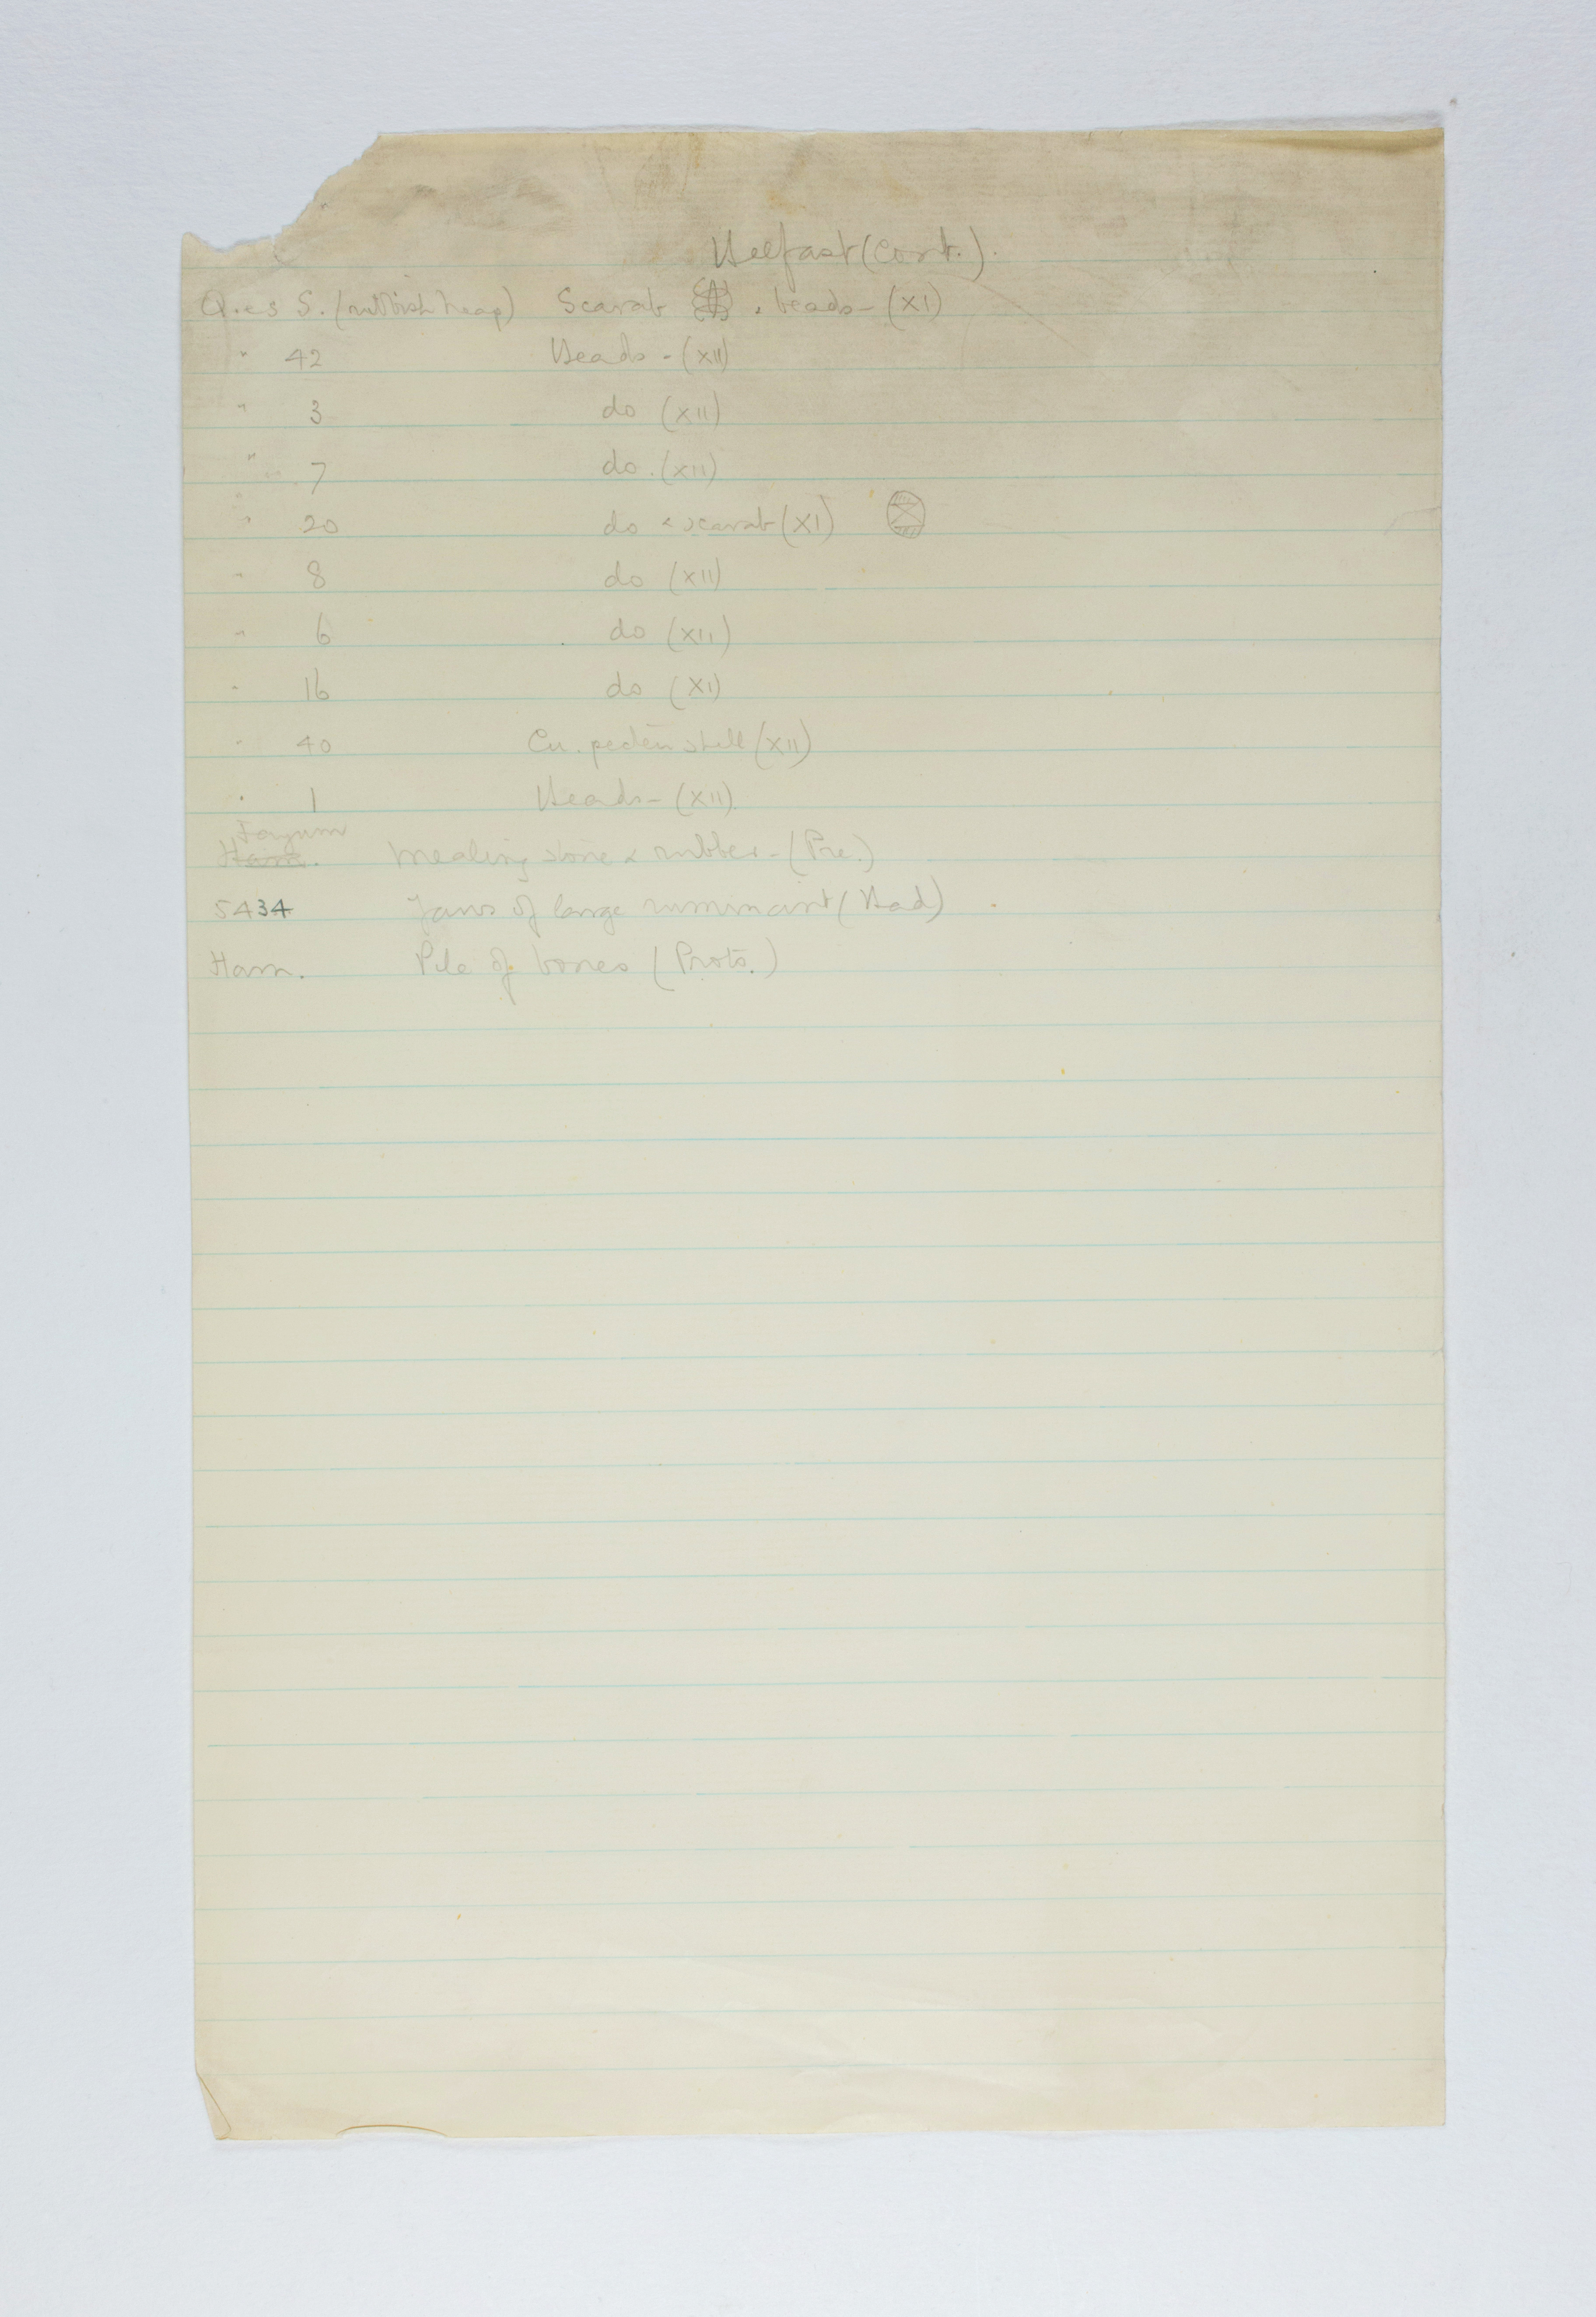 Belfast (Cont.).
Q.es S. (rubbish heap) Scarab & beads - (XI)
" 42 Beads - (XII)
" 3 do (XII)
" 7 do. (XII)
" 20 do & scarab (XI)
" 8 do (XII)
" 6 do (XII)
" 16 do (XI)
" 40 Cu. pecten shell (XII)
" 1 Beads - (XII)
Fayum
Ham. Mealing stone & rubber - (Pre.)
5434 Jaws of large ruminant (Bad)
Ham. Pile of bones (Proto.)